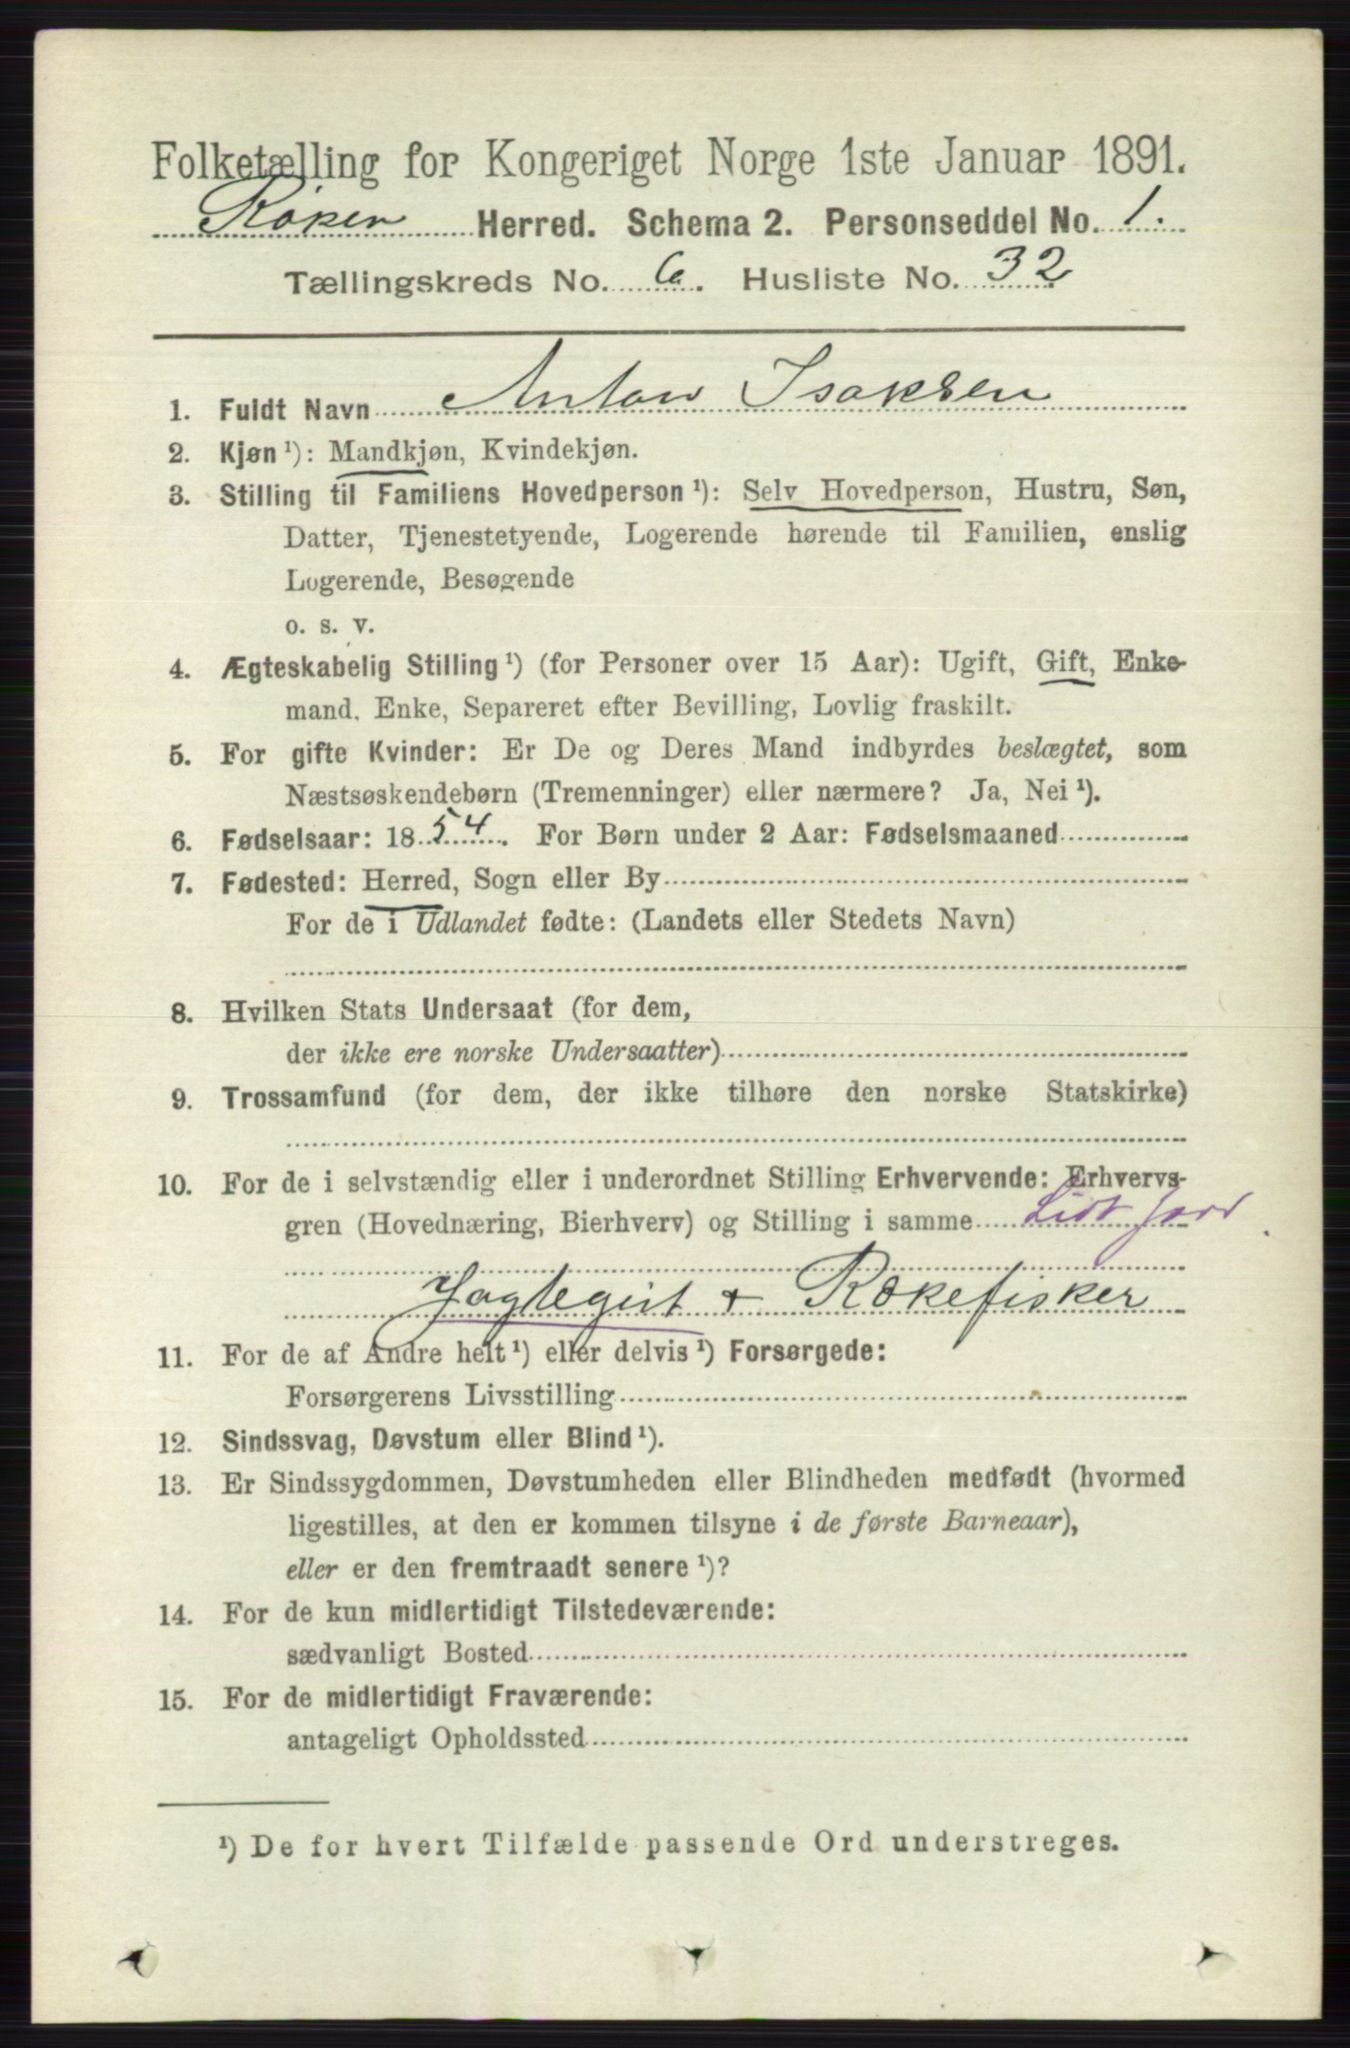 Folketælling for Kongeriget Norge 1ste Januar 1891.
Røken Herred. Schema 2. Personseddel No. 1.
Tællingskreds No. 6. Husliste No. 32
1. Fuldt Navn Anton Isaksen
2. Kjøn ¹): Mandkjøn, Kvindekjøn.
3. Stilling til Familiens Hovedperson ¹): Selv Hovedperson, Hustru, Søn,
Datter, Tjenestetyende, Logerende hørende til Familien, enslig
Logerende, Besøgende
o. s. v.
4. Ægteskabelig Stilling ¹) (for Personer over 15 Aar): Ugift, Gift, Enke-
mand, Enke, Separeret efter Bevilling, Lovlig fraskilt.
5. For gifte Kvinder: Er De og Deres Mand indbyrdes beslægtet, som
Næstsøskendebørn (Tremenninger) eller nærmere? Ja, Nei ¹).
6. Fødselsaar: 1854. For Børn under 2 Aar: Fødselsmaaned
7. Fødested: Herred, Sogn eller By
For de i Udlandet fødte: (Landets eller Stedets Navn)
8. Hvilken Stats Undersaat (for dem,
der ikke ere norske Undersaatter)
9. Trossamfund (for dem, der ikke tilhøre den norske Statskirke)
10. For de i selvstændig eller i underordnet Stilling Erhvervende: Erhvervs-
gren (Hovednæring, Bierhverv) og Stilling i samme Lidt Jord
Jagtegist + Rækefisker
11. For de af Andre helt ¹) eller delvis ¹) Forsørgede:
Forsørgerens Livsstilling
12. Sindssvag, Døvstum eller Blind ¹).
13. Er Sindssygdommen, Døvstumheden eller Blindheden medfødt (hvormed
ligestilles, at den er kommen tilsyne i de første Barneaar),
eller er den fremtraadt senere ¹)?
14. For de kun midlertidigt Tilstedeværende:
sædvanligt Bosted
15. For de midlertidigt Fraværende:
antageligt Opholdssted
¹) De for hvert Tilfælde passende Ord understreges.